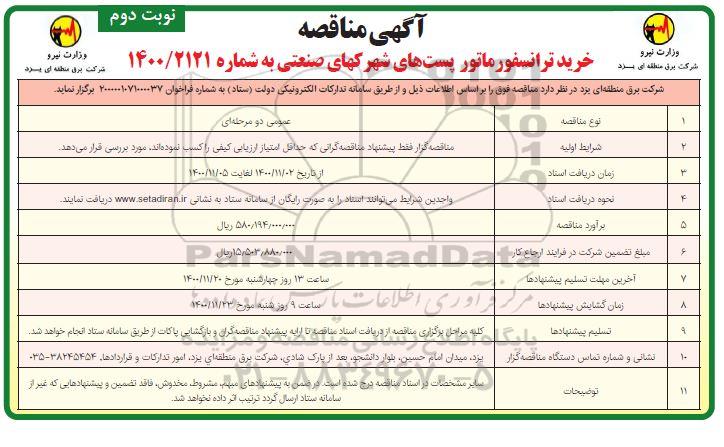 نوبت دوم
آگهی مناقصه
خرید ترانسفورماتور پست‌های شهرکهای صنعتی به شماره ۱۴۰۰/۲۱۲۱
وزارت نیرو
شرکت برق منطقه ای یـــزد
وزارت نیرو
شرکت برق منطقه ای یـــزد
شرکت برق منطقه‌ای یزد در نظر دارد مناقصه فوق را بر اساس اطلاعات ذیل و از طریق سامانه تدارکات الکترونیکی دولت (ستاد) به شماره فراخوان ۲۰۰۰۰۰۱۰۷۱۰۰۰۰۳۷ برگزار نماید.
۱ نوع مناقصه عمومی دو مرحله‌ای
۲ شرایط اولیه مناقصه‌گزار فقط پیشنهاد مناقصه‌گرانی که حداقل امتیاز ارزیابی کیفی را کسب نموده‌اند، مورد بررسی قرار می‌دهد.
۳ زمان دریافت اسناد از تاریخ ۱۴۰۰/۱۱/۰۲ لغایت ۱۴۰۰/۱۱/۰۵
۴ نحوه دریافت اسناد واجدین شرایط می‌توانند اسناد را به صورت رایگان از سامانه ستاد به نشانی www.setadiran.ir دریافت نمایند.
۵ برآورد مناقصه ۵۸۰,۱۹۴,۰۰۰,۰۰۰ ریال
۶ مبلغ تضمین شرکت در فرایند ارجاع کار ۱۵,۵۰۳,۸۸۰,۰۰۰ریال
۷ آخرین مهلت تسلیم پیشنهادها ساعت ۱۳ روز چهارشنبه مورخ ۱۴۰۰/۱۱/۲۰
۸ زمان گشایش پیشنهادها ساعت ۹ روز شنبه مورخ ۱۴۰۰/۱۱/۲۳
۹ تسلیم پیشنهادها کلیه مراحل برگزاری مناقصه از دریافت اسناد مناقصه تا ارایه پیشنهاد مناقصه‌گران و بازگشایی پاکات از طریق سامانه ستاد انجام خواهد شد.
۱۰ نشانی و شماره تماس دستگاه مناقصه‌گزار یزد، میدان امام حسین، بلوار دانشجو، بعد از پارک شادي، شرکت برق منطقه‌اي یزد، امور تدارکات و قراردادها، ۳۸۲۴۵۴۵۴-۰۳۵
۱۱ توضیحات سایر مشخصات در اسناد مناقصه درج شده است. در ضمن به پیشنهادهای مبهم، مشروط، مخدوش، فاقد تضمین و پیشنهادهایی که غیر از
سامانه ستاد ارسال گردد ترتیب اثر داده نخواهد شد.
ParsNamadData
مرکز فرآوری اطلاعات پارس نماد داده ها
پایگاه اطلاع رسانی مناقصه و مزایده
۰۲۱-۸۸۳۴۹۶۷۰-۵